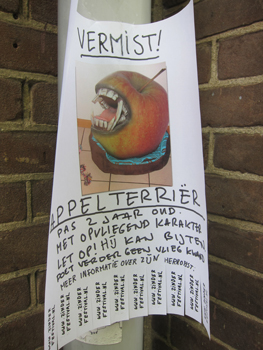 VERMIST!
APPELTERRIËR
PAS 2 JAAR OUD.
MET OPVLIEGEND KARAKTER
LET OP! HIJ KAN BIJTEN
DOET VERDER GEEN VLIEG KWAAD
MEER INFORMATIE OVER ZIJN HERKOMST:
WWW.ZINDER
FESTIVAL.NL
WWW.ZINDER
FESTIVAL.NL
WWW.ZINDER
FESTIVAL.NL
WWW.ZINDER
FESTIVAL.NL
WWW.ZINDER
FESTIVAL.NL
WWW.ZINDER
FESTIVAL.NL
WWW.ZINDER
FESTIVAL.NL